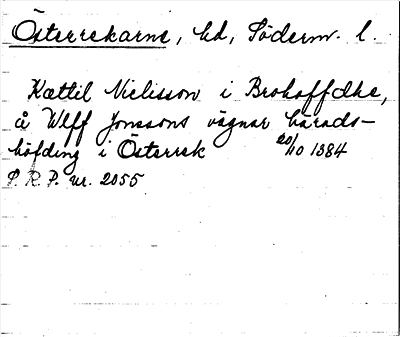 Österrekarne, hd, Söderm. l.
Kættil Nielisson i Brokoffdhe,
å Wlff Jonssons vägnar härads-
höfding i Österrek 20/10 1384
P. R. P. nr. 2055